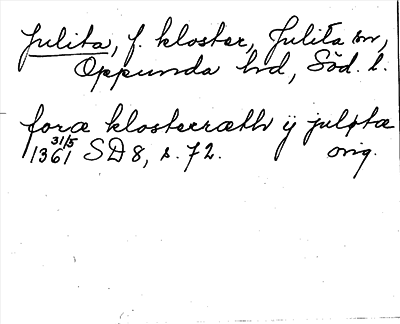 Julita, f. kloster, Julita sn,
Oppunda hd, Söd. l.
foræ klosterræth ij julptæ
1361 31/5 SD 8, s. 72. orig.